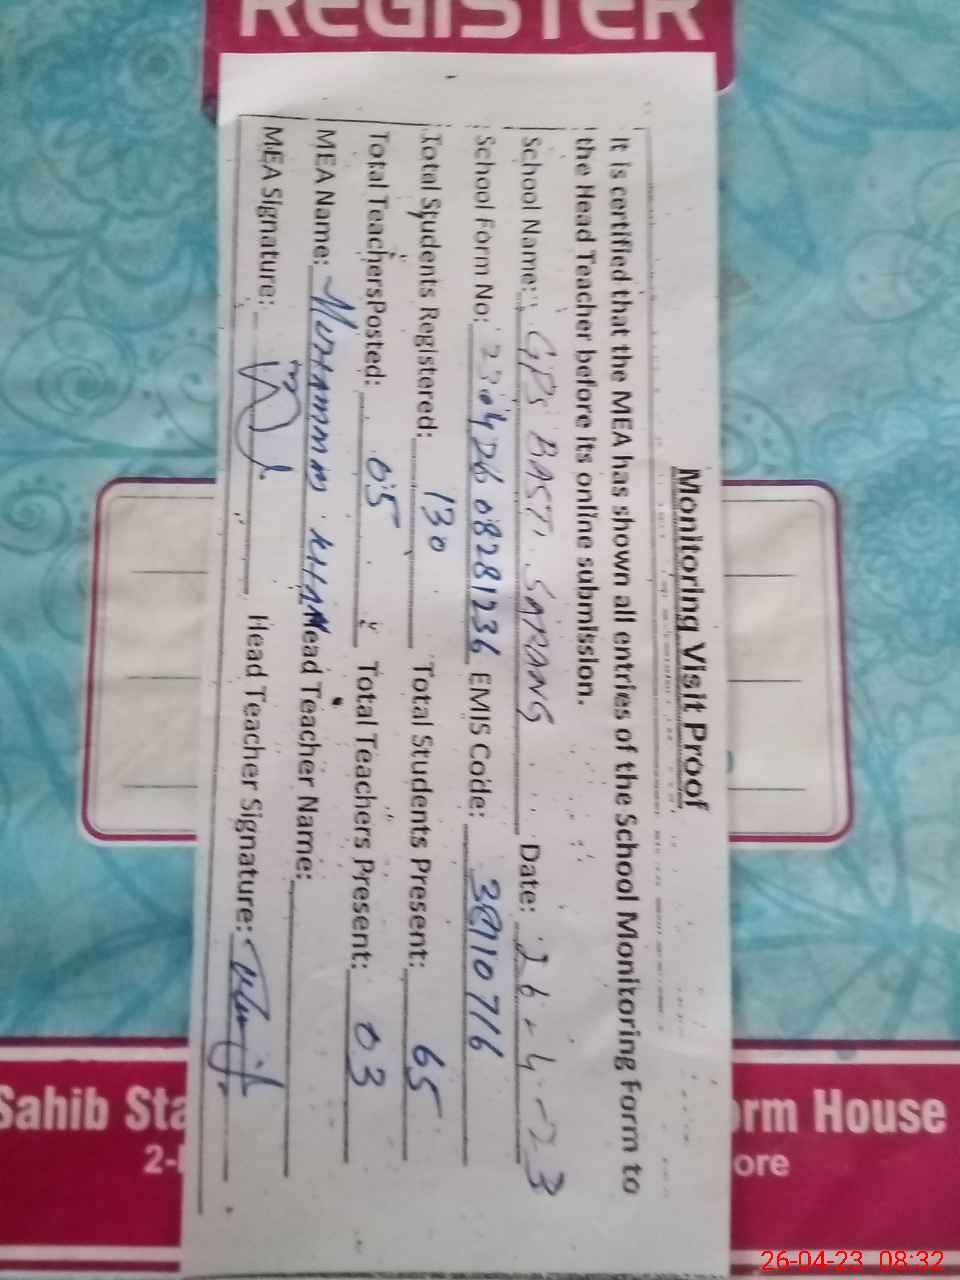 REGISTER
Monitoring Visit Proof
It is certified that the MEA has shown all entries of the School Monitoring Form to
the Head Teacher before its online submission.
School Name: GPS BASTI SARANG Date: 26-4-23
School Form No: 2304D608281236 EMIS Code: 36110716
Total Students Registered: 130 Total Students Present: 65
Total Teachers Posted: 05 Total Teachers Present: 03
MEA Name: MUHAMMAD KHAN Head Teacher Name:
MEA Signature: Head Teacher Signature:
Sahib Sta rm House
2- ore
26-04-23 08:32